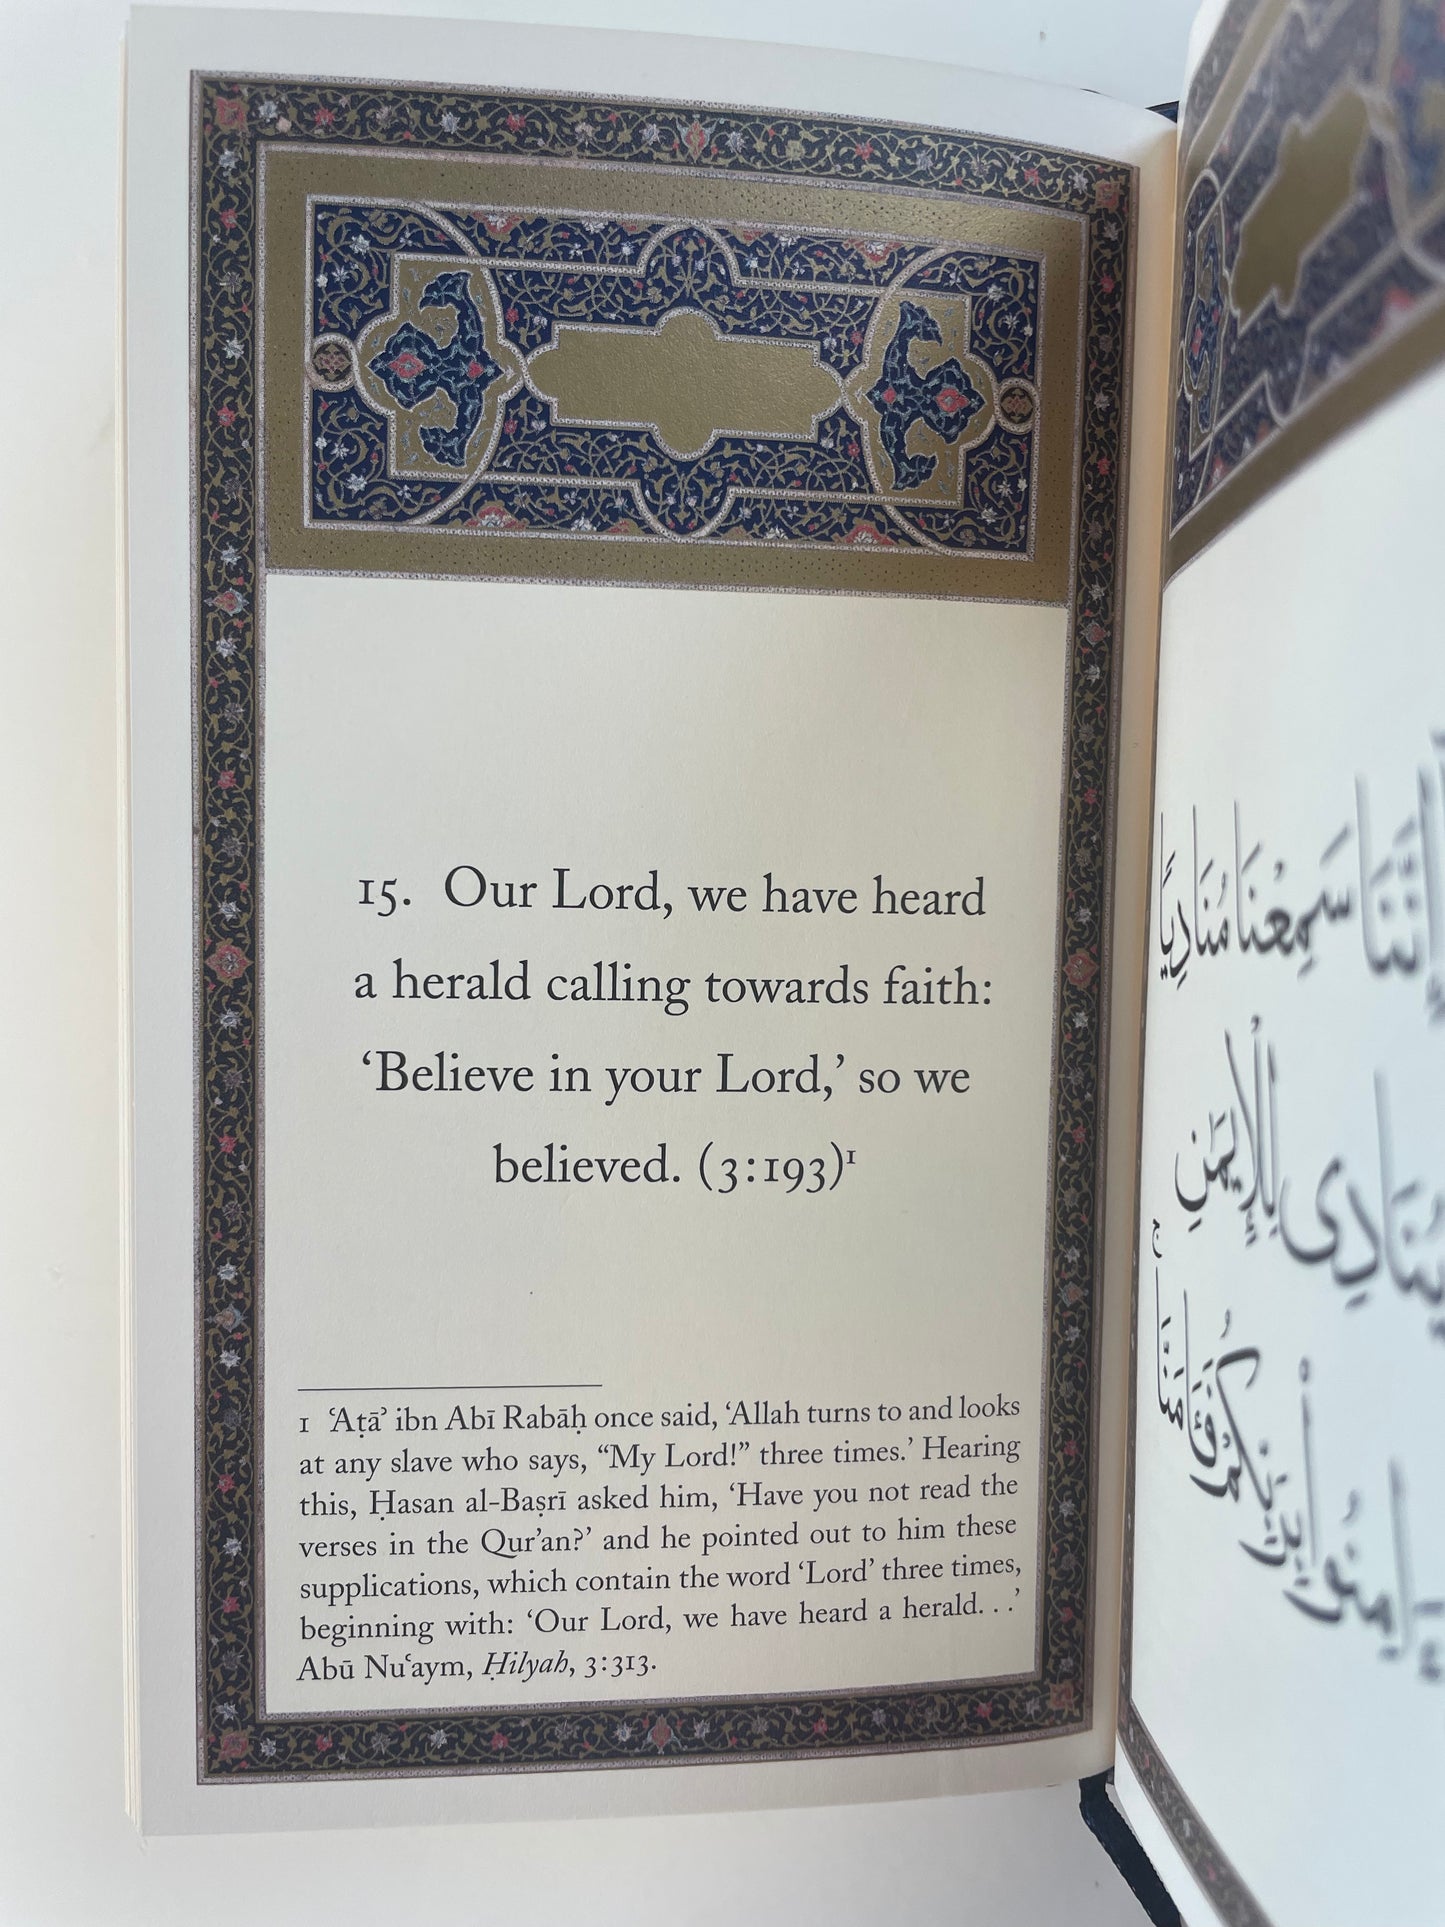 15. Our Lord, we have heard
a herald calling towards faith:
‘Believe in your Lord,’ so we
believed. (3:193)¹
1 ʿAṭāʾ ibn Abī Rabāḥ once said, ‘Allah turns to and looks
at any slave who says, “My Lord!” three times.’ Hearing
this, Ḥasan al-Baṣrī asked him, ‘Have you not read the
verses in the Qur’an?’ and he pointed out to him these
supplications, which contain the word ‘Lord’ three times,
beginning with: ‘Our Lord, we have heard a herald. . .’
Abū Nuʿaym, Ḥilyah, 3:313.
إِنَّنَا سَمِعْنَا مُنَادِيًا
يُنَادِى لِلْإِيمَٰنِ
ءَامِنُوا۟ بِرَبِّكُمْ فَـَٔامَنَّا ۚ